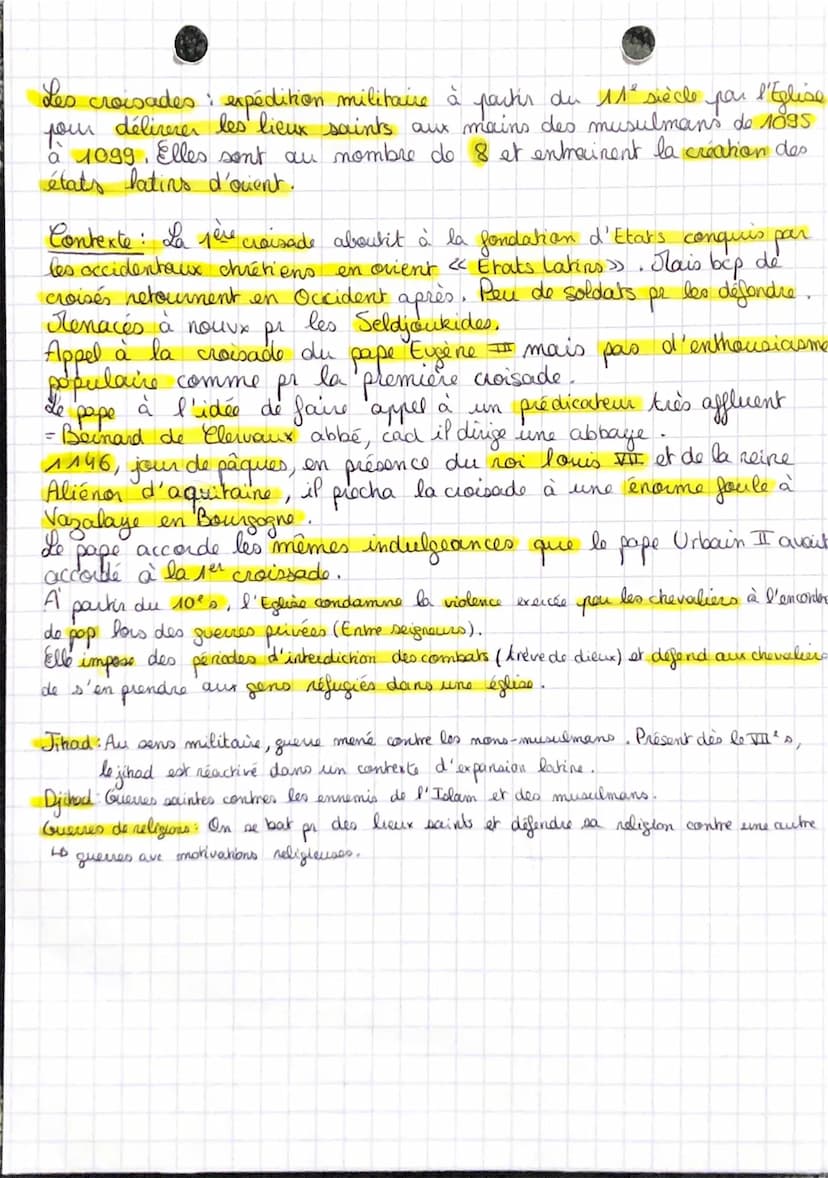 Les croisades : expédition militaire à partir du 11e siècle par l'Eglise
pour délivrer les lieux saints aux mains des musulmans de 1095
à 1099. Elles sont au nombre de 8 et entrainent la création des
états latins d'orient.
Contexte : La 1ère croisade aboutit à la fondation d'Etats conquis par
les occidentaux chrétiens en orient « Etats Latins ». Mais bcp de
croisés retournent en Occident après. Peu de soldats pr les défendre.
Menacés à nouvx pr les Seldjoukides.
Appel à la croisade du pape Eugène III mais pas d'enthousiasme
populaire comme pr la première croisade.
Le pape à l'idée de faire appel à un prédicateur très affluent
= Bernard de Clervaux abbé, càd il dirige une abbaye.
1146, jour de pâques, en présence du roi louis VII et de la reine
Aliénor d'aquitaine, il précha la croisade à une énorme foule à
Vazalaye en Bourgogne.
Le pape accorde les mêmes indulgeances que le pape Urbain II avait
accordé à la 1er croissade.
A partir du 10e s, l'Eglise condamne la violence exercée par les chevaliers à l'encontre
de pop lors des guerres privées (Entre seigneurs).
Elle impose des périodes d'interdiction des combats (trève de dieux) et défend aux chevaliers
de s'en prendre aux gens réfugiés dans une église.
Jihad : Au sens militaire, guerre mené contre les nons-musulmans. Présent dès le VIIe s,
le jihad est réactivé dans un contexte d'expansion latine.
Djihad : Guerres saintes contres les ennemis de l'Islam et des musulmans.
Guerres de religions : On se bat pr des lieux saints et défendre sa religion contre une autre
↳ guerres avc motivations religieuses.